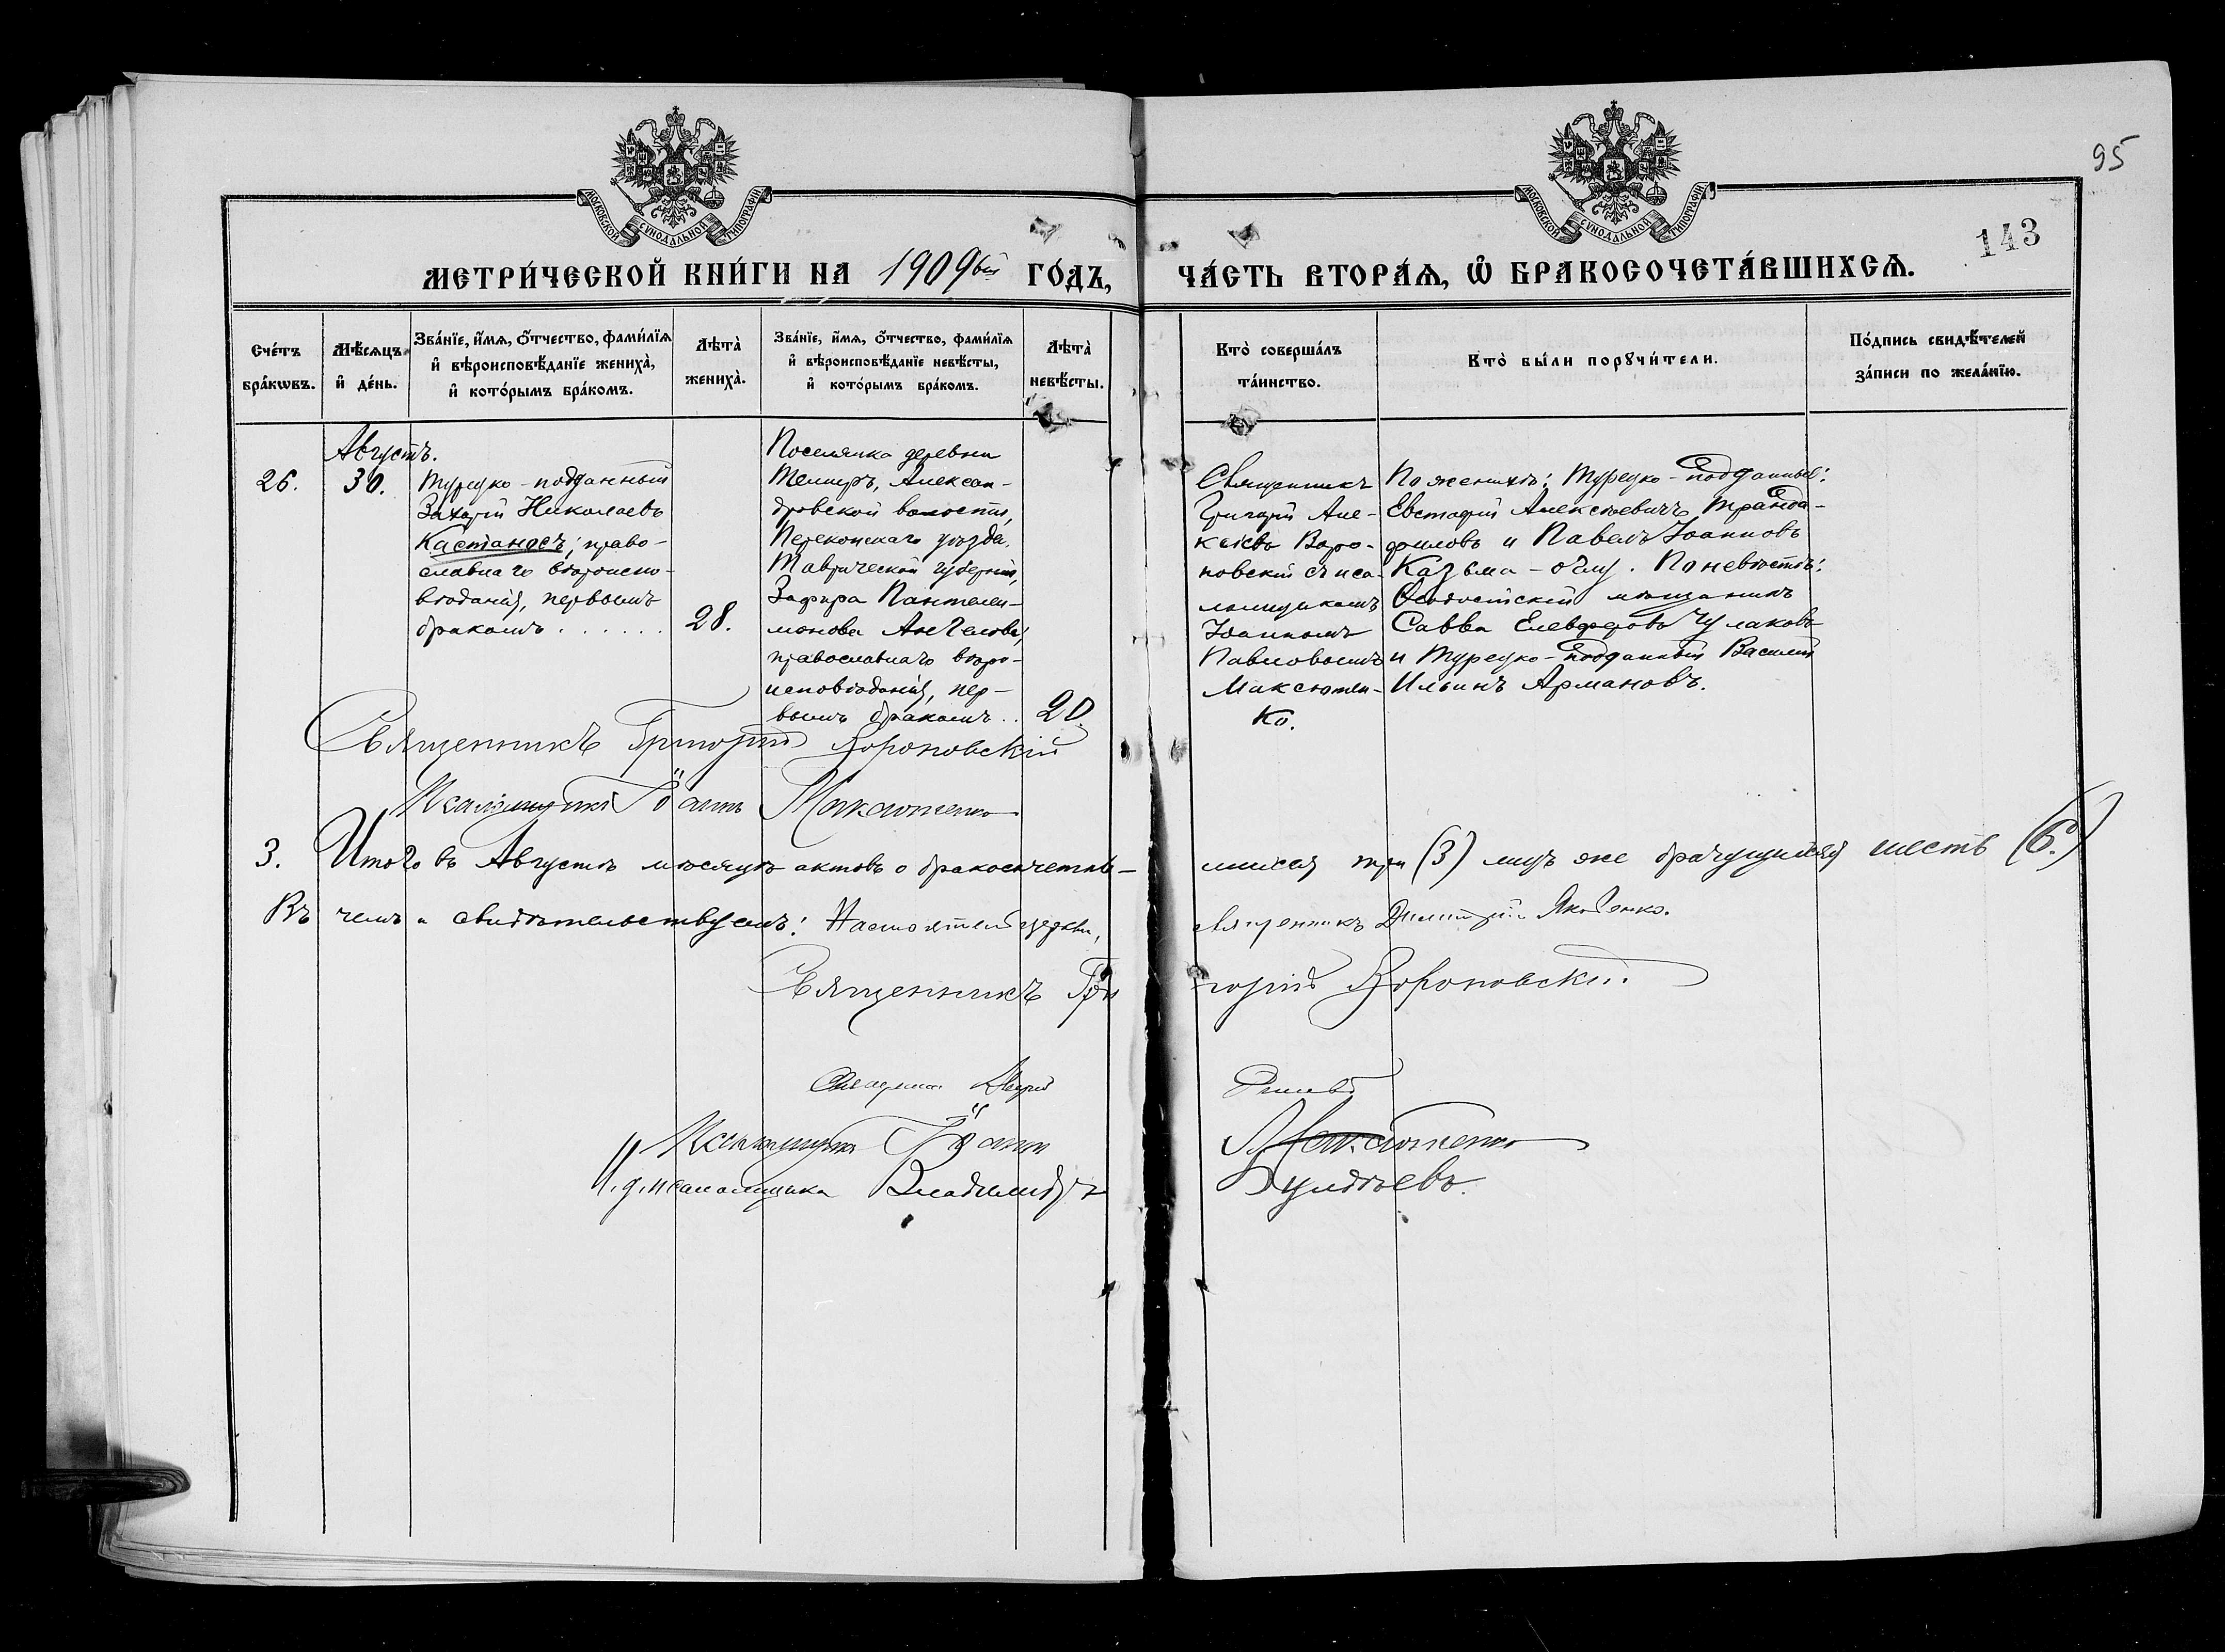 95
143
МОСКОВСКОЙ СѴНОДАЛЬНОЙ ТИПОГРАФІИ
МОСКОВСКОЙ СѴНОДАЛЬНОЙ ТИПОГРАФІИ
МЕТРИ́ЧЕСКОЙ КНИ́ГИ НА 1909ый ГО́ДЪ,
ЧА́СТЬ ВТОРА́Ѧ, Ѽ БРАКОСОЧЕТА́ВШИХСѦ.
Сче́тъ бра́кѡвъ.
Мѣ́сяцъ и҆ де́нь.
Зва́нїе, и҆́мѧ, ѻ҆́тчество, фами́лїѧ и҆ вѣроисповѣ́данїе жениха̀, и҆ кото́рымъ бра́комъ.
Лѣта̀ жениха̀.
Зва́нїе, и҆́мѧ, ѻ҆́тчество, фами́лїѧ и҆ вѣроисповѣ́данїе невѣ́сты, и҆ кото́рымъ бра́комъ.
Лѣта̀ невѣ́сты.
Кто̀ соверша́лъ та́инство.
Кто̀ бы́ли порꙋчи́тели.
По́дпись свидѣ́телей за́писи по жела́нїю.
26.
Августъ.
30.
Турецко-подданный
Захарій Николаевъ
Кастаносъ; право-
славнаго вѣроиспо-
вѣданія, первымъ
бракомъ . . . . . .
28.
Поселянка деревни
Александ-
дровской волости,
Перекопскаго уѣзда,
Таврической губерніи,
Зафира Пантелей-
монова Ангелова;
православнаго вѣро-
исповѣданія, пер-
вымъ бракомъ . .
20.
Священникъ
Григорій Але-
ксѣевъ Воро-
новскій съ пса-
ломщикомъ
Іоанномъ
Павловымъ
Максютен-
ко.
По женихѣ: Турецко-подданные:
Евстафій Алексѣевичъ Транда-
филовъ и Павелъ Іоанновъ
Казьма-оглу. По невѣстѣ:
Ѳеодосійскій мѣщанинъ
Савва Елевферовъ Чулаковъ
и Турецко-подданный Василій
Ильинъ Армановъ.
Священникъ Григорій Вороновскій
Псаломщикъ Іоаннъ Максютенко
3. Итого въ Августѣ мѣсяцѣ актовъ о бракосочетав-
шихся три (3) лицъ же брачущихся шесть (6.)
Въ чемъ и свидѣтельствуемъ: Настоятель церкви,
священникъ Димитрій Якубенко.
Священникъ Гри
горій Вороновскій.
Священникъ
Псаломщикъ Іоаннъ
Максютенко
И.д. псаломщика Владиміръ